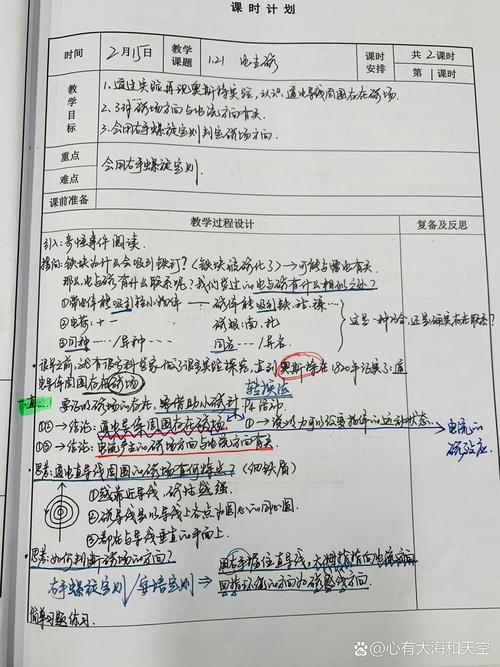 课时计划
时间 2月15日 教学课题 1.21 电生磁 课时安排 共2课时
第1课时
教学目标
1.通过实验再现奥斯特实验,认识通电导线周围存在磁场.
2.了解磁场方向与电流方向有关.
3.会用右手螺旋定则判定磁场方向.
重点 难点
会用右手螺旋定则.
课前准备
教学过程设计 复备及反思
引入:奇怪事件阅读.
提问:铁块为什么会吸引铁钉?(铁块被磁化了)→可能与雷电有关
那么电与磁有什么联系呢?我们学过的电与磁有什么相似之处?
①带电体能吸引轻小物体 — 磁体能吸引铁、钴、镍…
②电荷:+ - 磁极:南、北
③同种…/异种… 同名…/异名…
这是一种巧合,还是确实存在联系?
·很早之前,就有很多科学家,做了很多实验探究,直到奥斯特在1820年证实了:通
电导体周围存在磁场
转换法
要证明磁场的存在,需借助小磁针
①→结论:通电导体周围存在磁场.
①→没外力可以改变指针的运动状态.
②→结论:电流产生的磁场方向与电流方向有关
电流的
磁效应
·思考:通电直导线周围的磁场有何特点?(细铁屑)
①越靠近导线,磁性越强.
②磁感线是以导线上各点为圆心的同心圆.
③都在与导线垂直的平面上.
·思考:如何判断磁场的方向?
右手螺旋定则/安培定则 →
用右手握住直导线,大拇指指向电流方向
四指环绕的方向为磁感线方向.
简单习题练习.
百家号/心有大海和天空